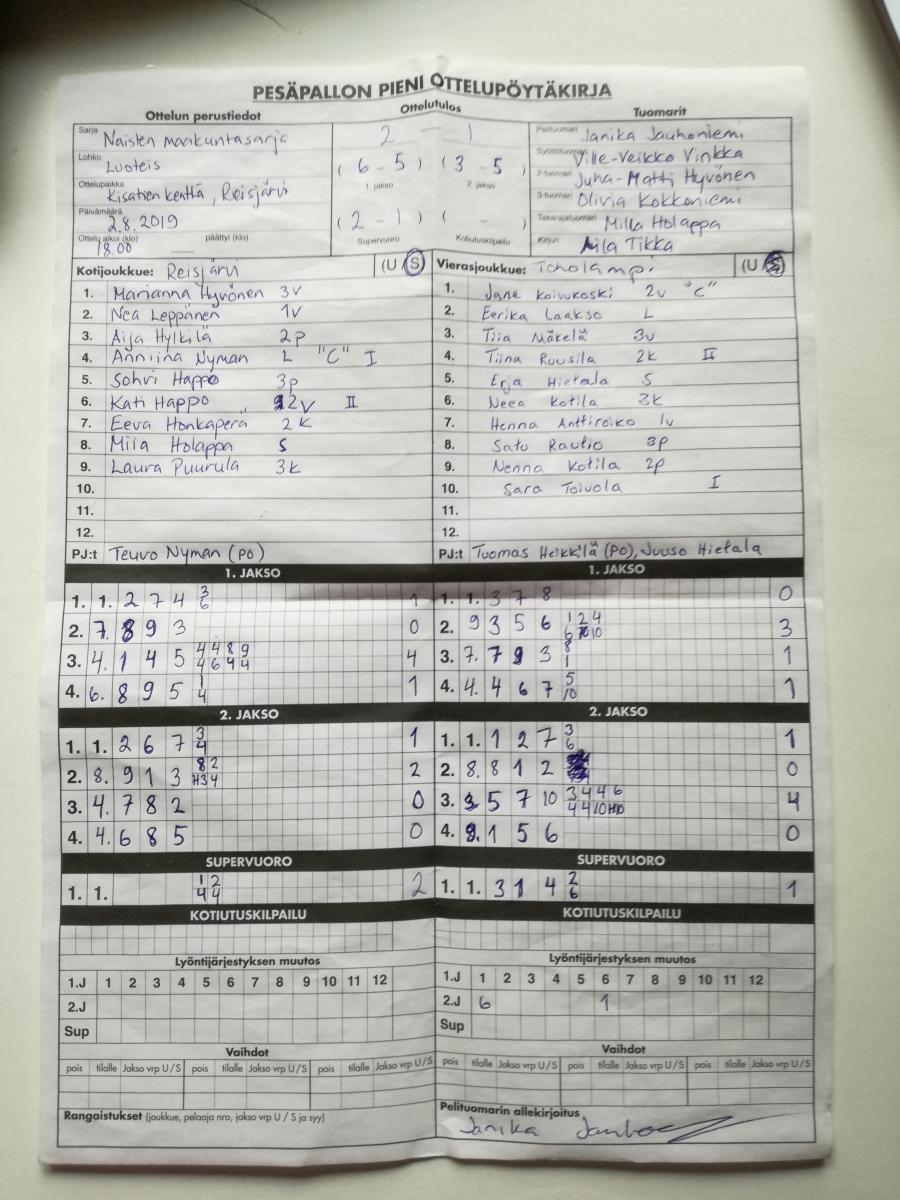 PESÄPALLON PIENI OTTELUPÖYTÄKIRJA
Ottelun perustiedot Ottelutulos Tuomarit
Sarja Naisten maakuntasarja
Lohko Luoteis
Ottelupaikka Kisatien kenttä, Reisjärvi
Päivämäärä 2.8.2019
Ottelu alkoi (klo) 18.00 päättyi (klo)
2 - 1
( 6 - 5 ) ( 3 - 5 )
1. jakso 2. jakso
( 2 - 1 ) ( - )
Supervuoro Kotiutuskilpailu
Pelituomari Janika Jauhoniemi
Syöttötuomari Ville-Veikko Vinkka
2-tuomari Juha-Matti Hyvönen
3-tuomari Olivia Kokkoniemi
Takarajatuomari Milla Holappa
Kirjuri Aila Tikka
Kotijoukkue: Reisjärvi (U / S)
1. Marianna Hyvönen 3v
2. Nea Leppänen 1v
3. Aija Hylkilä 2p
4. Anniina Nyman L "C" I
5. Sohvi Happo 3p
6. Kati Happo 2v II
7. Eeva Honkaperä 2k
8. Miia Holappa S
9. Laura Puurula 3k
10.
11.
12.
PJ:t Teuvo Nyman (PO)
Vierasjoukkue: Toholampi (U / S)
1. Jane Koivukoski 2v "C"
2. Eerika Laakso L
3. Tiia Mäkelä 3v
4. Tiina Ruusila 2k II
5. Erja Hietala S
6. Neea Kotila 3k
7. Henna Anttiroiko 1v
8. Satu Rautio 3p
9. Nenna Kotila 2p
10. Sara Toivola I
11.
12.
PJ:t Tuomas Heikkilä (PO), Juuso Hietala
1. JAKSO
1. 1. 2 7 4 3 1
6
2. 7. 8 9 3 0
3. 4. 1 4 5 4 4 8 9 4
4 6 4 4
4. 6. 8 9 5 1 1
4
1. JAKSO
1. 1. 3 7 8 0
2. 9 3 5 6 1 2 4 3
6 10 10
3. 7. 7 9 3 8 1
1
4. 4. 4 6 7 5 1
10
2. JAKSO
1. 1. 2 6 7 3 1
4
2. 8. 9 1 3 8 2 2
H3 4
3. 4. 7 8 2 0
4. 4. 6 8 5 0
2. JAKSO
1. 1. 1 2 7 3 1
6
2. 8. 8 1 2 0
3. 3 5 7 10 3 4 4 6 4
4 4 10 H10
4. 9. 1 5 6 0
SUPERVUORO
1. 1. 1 2 2
4 4
SUPERVUORO
1. 1. 3 1 4 2 1
6
KOTIUTUSKILPAILU
KOTIUTUSKILPAILU
Lyöntijärjestyksen muutos
1.J 1 2 3 4 5 6 7 8 9 10 11 12
2.J
Sup
Lyöntijärjestyksen muutos
1.J 1 2 3 4 5 6 7 8 9 10 11 12
2.J 6 1
Sup
Vaihdot
pois tilalle Jakso vrp U / S pois tilalle Jakso vrp U / S pois tilalle Jakso vrp U / S
Vaihdot
pois tilalle Jakso vrp U / S pois tilalle Jakso vrp U / S pois tilalle Jakso vrp U / S
Rangaistukset (joukkue, pelaaja nro, jakso vrp U / S ja syy)
Pelituomarin allekirjoitus
Janika